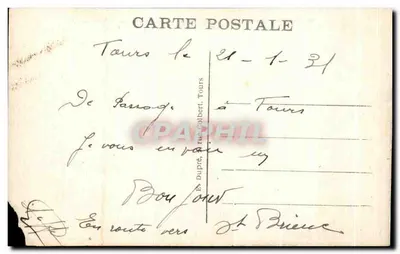 CARTE POSTALE
Tours le 21-1-31
De Passage à Tours
Je vous envoie un
Bonjour
En route vers St Brieuc
Dupré, rue Colbert, Tours
CPARAMA